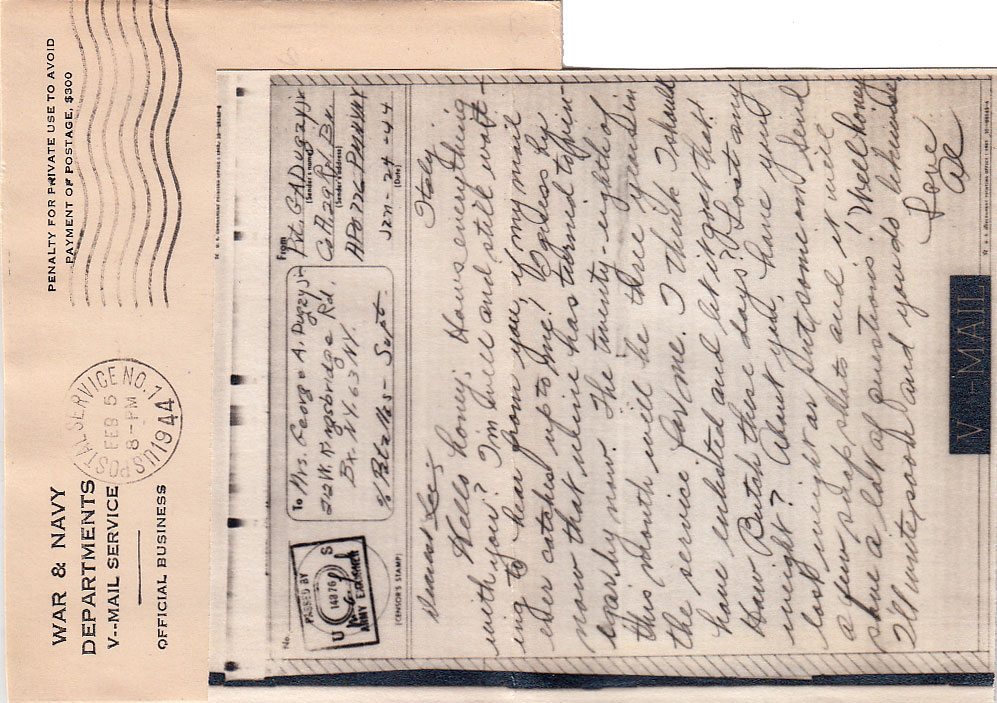 WAR & NAVY
DEPARTMENTS
V--MAIL SERVICE
OFFICIAL BUSINESS
U.S. POSTAL SERVICE NO. 1
FEB 5
8-PM
1944
PENALTY FOR PRIVATE USE TO AVOID
PAYMENT OF POSTAGE, $300
No.
PASSED BY
U S
14876
ARMY EXAMINER
(CENSOR'S STAMP)
To Mrs. George A. Dugzy Jr
22 W. Kingsbridge Rd.
Bx. N.Y. 63 N.Y.
Sept.
From
Pvt. G A Dugzy Jr
(Sender's name)
Co A
(Sender's address)
APO 772 c/o PM NY NY
Jan-24-44
(Date)
Italy
Dearest
Wells honey; Hows everything
with you? I'm well and still wait-
ing to hear from you, if my mail
ever catches up to me! I guess by
now that rhine has turned to spin-
early now. The twenty-eighth of
this month will be three years in
the service for me. I think I should
have enlisted and let it go at that.
How Butch these days? Lost any
weight? Aint you, have you
lost weight or put some on; Send
a few snap shots and it will
save a lot of questions! Well honey
I'll write soon and you do likewise
Love
Al
V--MAIL